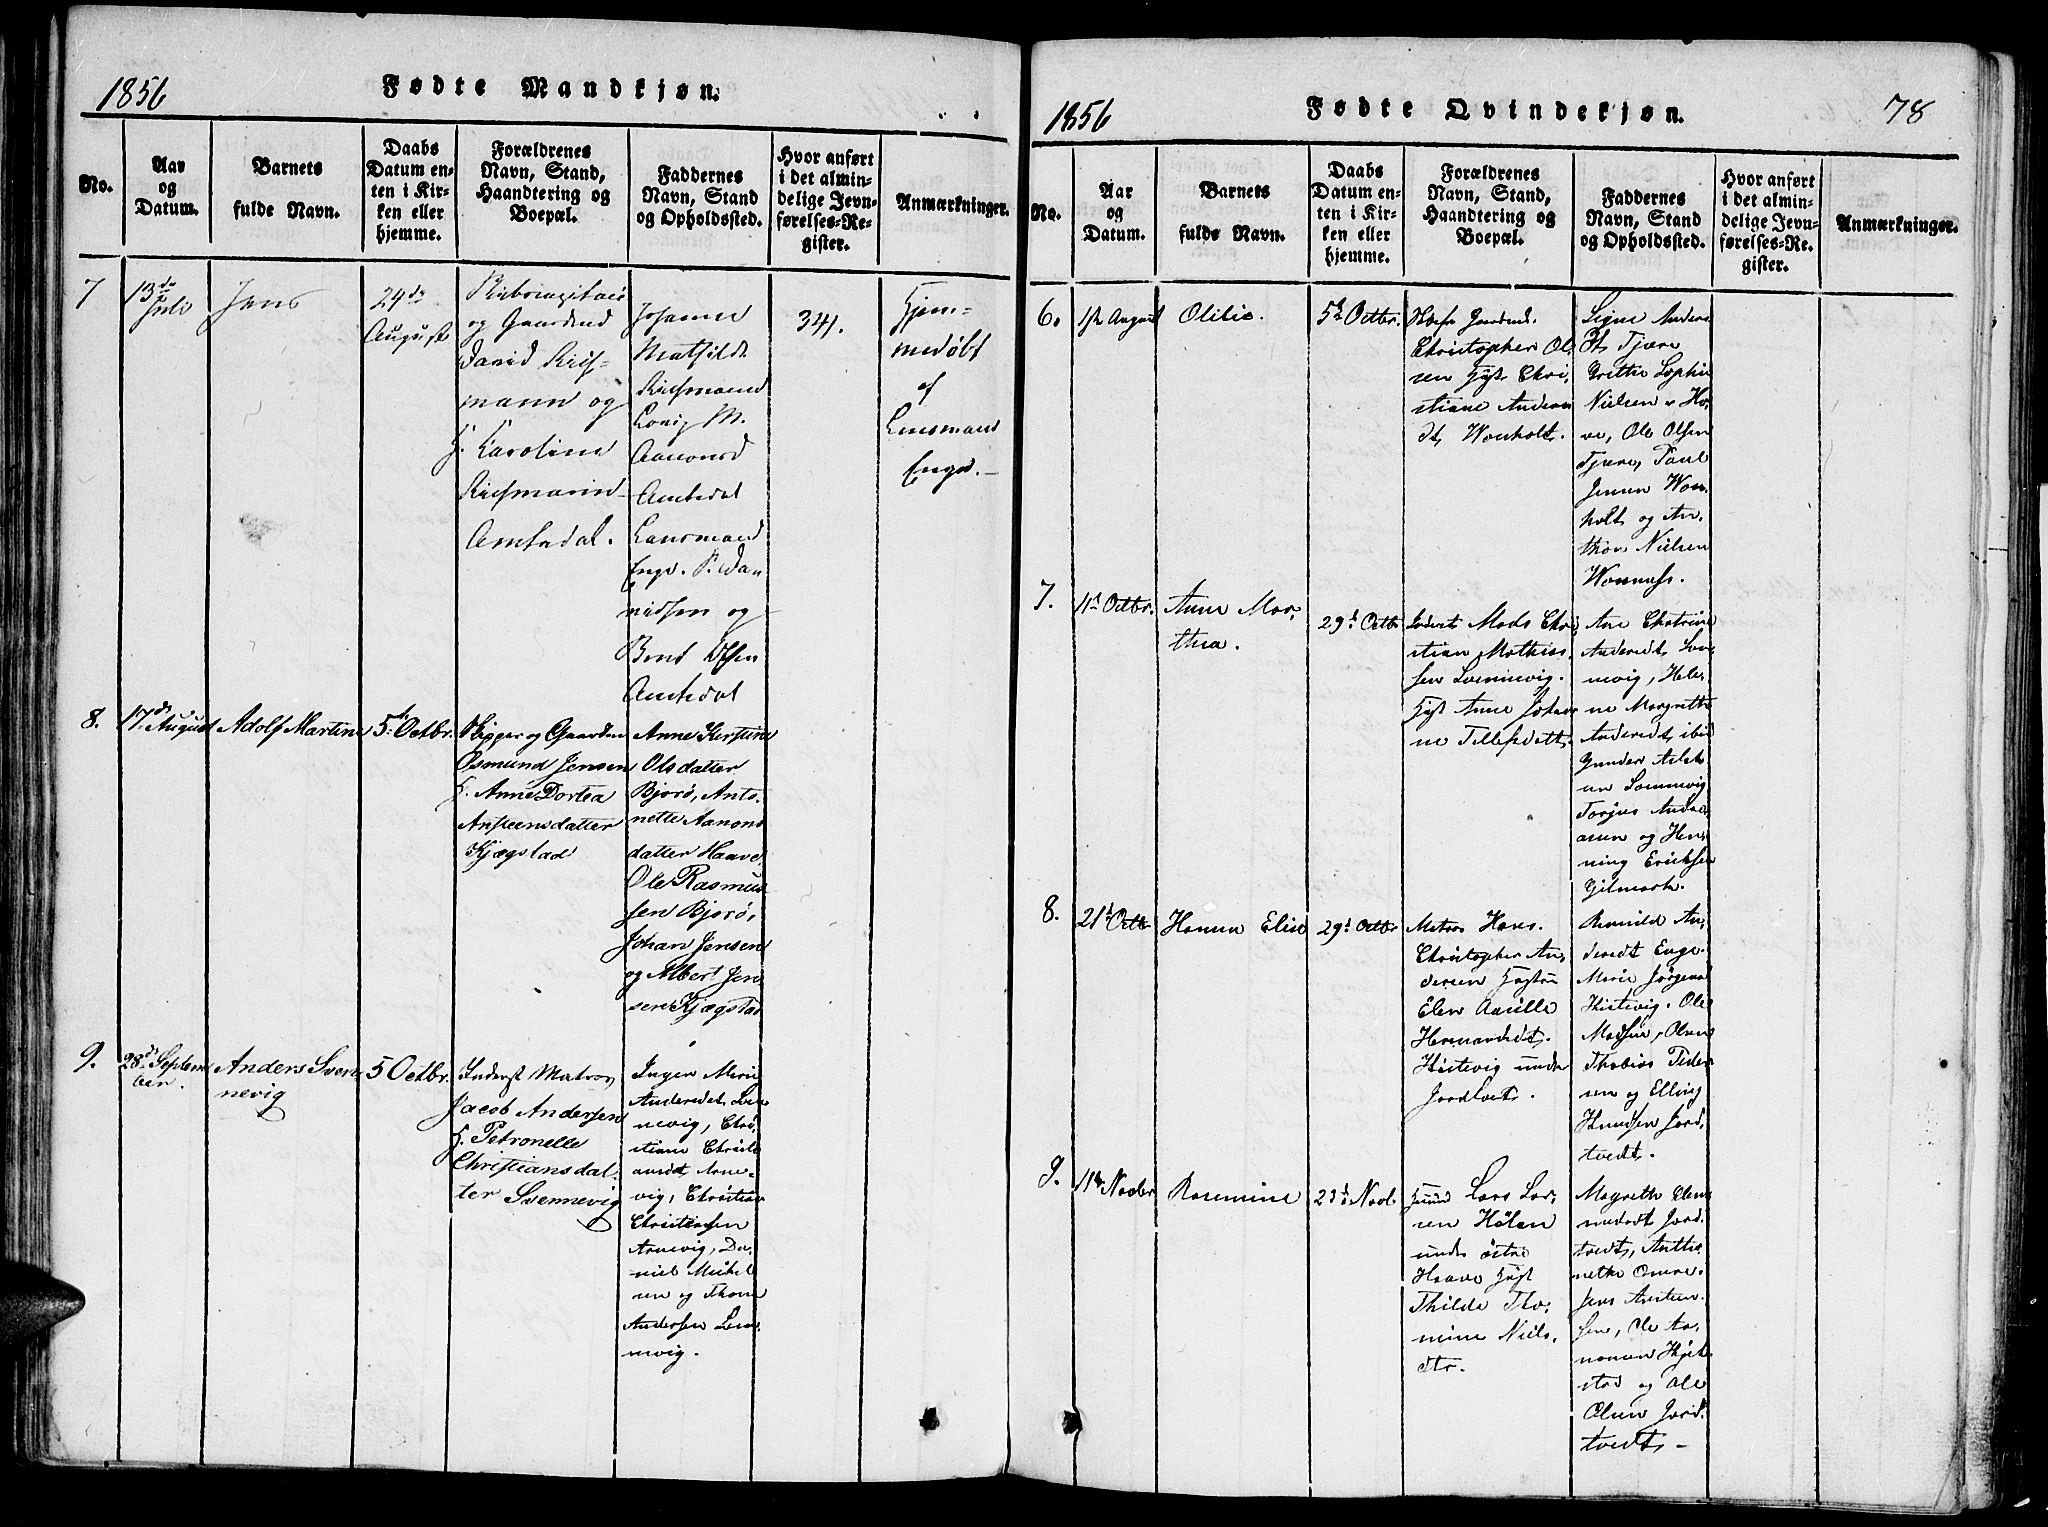 1856
Fødte Mandkjøn.
No.
Aar
og
Datum.
Barnets
fulde Navn.
Daabs
Datum en-
ten i Kir-
ken eller
hjemme.
Forældrenes
Navn, Stand,
Haandtering og
Boepæl.
Faddernes
Navn, Stand
og Opholdssted.
Hvor anført
i det almin-
delige Jevn-
førelses-Re-
gister.
Anmærkninger.
7
13de
Juli
Jens
24de
August
og Gaardmd
David
mann og
H. Karoline
Amtedal.
Johanne
Mathilde
M.
Aanonsd
Amtedal
Lensmand
Enge. P. Da
nielsen og
Bent Olsen
Amtedal
341.
Hjem-
medøbt
af
Lensmand
Enge.
8.
17de August
Adolf Martin
5t Octbr.
Skipper og Gaardm
Osmund Jensen
H. Anne Dortea
Ansteensdatter
Kjægstad
Anne Kirstine
Olsdatter
Bjorø, Anto-
nette Aanons
datter Haave,
Ole Rasmus
sen Bjorø,
Johan Jensen
og Albert Jen
sen Kjægstad
9.
28de Septem
ber.
Anders Sven
nevig
5 Octbr.
Inderst Matros
Jacob Andersen
H. Petronelle
Christiansdat-
ter Svennevig
Inger Marie
Andersdt, Sven
nevig, Chri-
stiane Christi
ansdt Arne-
vig, Christian
Christiansen
Arnevig, Da-
niel Mikel
sen og Thom
Andersen Sven-
nevig.
1856
Fødte Qvindekjøn.
78
No.
Aar
og
Datum.
Barnets
fulde Navn.
Daabs
Datum en-
ten i Kir-
ken eller
hjemme.
Forældrenes
Navn, Stand,
Haandtering og
Boepæl.
Faddernes
Navn, Stand
og Opholdssted.
Hvor anført
i det almin-
delige Jevn-
førelses-Re-
gister.
Anmærkninger.
6.
1st August
Olilie.
5t Octbr.
Christopher Ol-
sen Hust Chri-
stiane Anders
dt, Wonholt.
Signe Anders
dt, Tjære
Grethe Sophie
Nielsen, Ho-
ve, Ole Olsen
Tjære, Paul
Jensen Won-
holt og An-
thon Nielsen
Wonnes.
7.
11t Octbr.
Anne Mar-
thea.
29t Octb
Inderst Mads Chri
stian Mathias-
sen Svennevig.
Hust Anne Johan
ne Tellefsdatt.
Ane Chatrine
Andersdt, Sven-
nevig, Hele-
ne Margrethe
Andersdt, ibid
Gunder Aslak
sen Svennevig
Torjus Andre
asen og Hen-
ning Eriksen
Gitmark.
8.
21t Octb
Hanna Elise
29t Octbr
Matros Hans
Christopher An-
dersen Hustru
Elen Amille
Hermansdt.
Høstevig under
Jordtvet.
Romilde An-
dersdt Enge.
Marie Jørgensd
Høstevig, Ole
Madsen, Olsen
Thobias Peder-
sen og Elling
Knudsen Jord,
tvedt.
9.
11te Novbr
Rasmine
23t Novb.
Lars Lar-
sen Hølen
under østre
Haave Hust
Thilde Tho-
mine Niels-
dtr.
Magrethe Clem
medsdt Jord-
tvedt, Antto-
nethe Omre.
Jens Ansten-
sen, Ole Aa-
nonsen Kjek-
stad og Ole
Olsen Jord-
tvedt. –